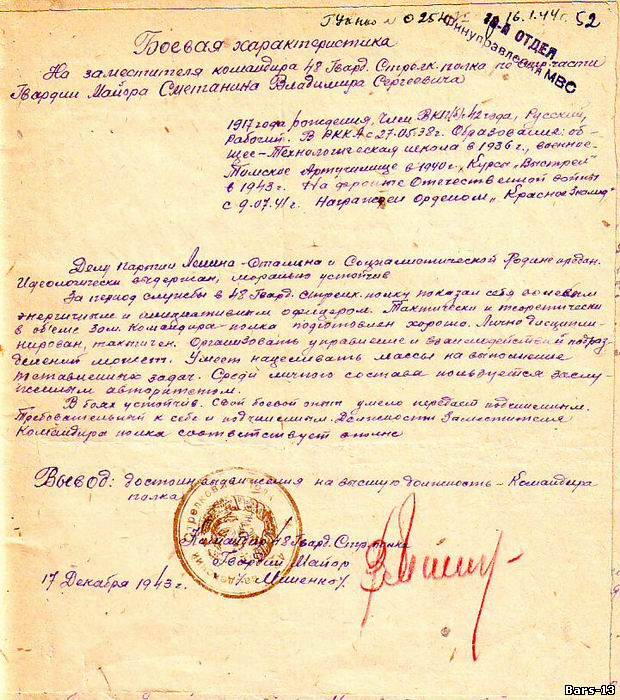 16.I.44г. 52
10-й ОТДЕЛ
Финуправления МВС
Боевая характеристика
На заместителя командира 48 Гвард. Стрелк. полка по стр. части
Гвардии Майора Сметанина Владимира Сергеевича
1917 года рождения, Член ВКП(б) с 42 года, Русский,
Рабочий. В РККА с 27.05.38г. Образование: об-
щее – Технологическая школа в 1936г., военное –
Томское Артучилище в 1940г., Курсы „Выстрел“
в 1943г. На фронте Отечественной войны
с 9.07.41г. Награжден Орденом „Красное Знамя“
Делу Партии Ленина – Сталина и Социалистической Родине предан.
Идеологически выдержан, морально устойчив
За период службы в 48 Гвард. Стрелк. полку показал себя волевым
энергичным и инициативным офицером. Тактически и теоретически
в объеме Зам. Командира полка подготовлен хорошо. Лично дисципли-
нирован, тактичен. Организовать управление и взаимодействие подраз-
делений может. Умеет нацеливать массы на выполнение
поставленных задач. Среди личного состава пользуется заслу-
женным авторитетом.
В боях устойчив. Свой боевой опыт умело передает подчиненным.
Требовательный к себе и подчиненным. Должности Заместителя
Командира полка соответствует вполне
Вывод: достоин выдвижения на высшую должность – Командира
полка
Командир 48 Гвард. Стр. полка
Гвардии Майор
/Мищенко/
17 Декабря 1943г.
Bars-13